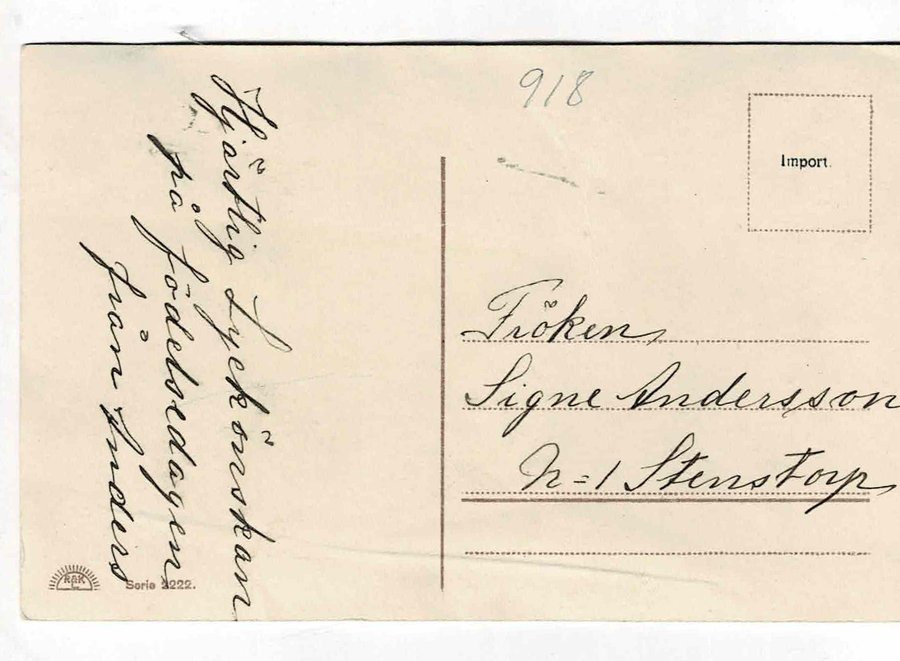 Hjärtlig Lyckönskan
på födelsedagen
från Anders
918
Import.
Fröken
Signe Andersson
N=1 Stenstorp
R&K
L
Serie 2222.